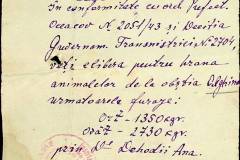 În conformitate cu ord. Prefect.
Oceacov N. 2051/43 și Decizia
Gubernăm. Transnistriei N. 2704,
veți elibera pentru hrana
animalelor de la obștia
urmatoarele furaje:
Orz - 1350 kgr.
Ovăz - 2730 kgr.
prin D-l Dehodii Ana.